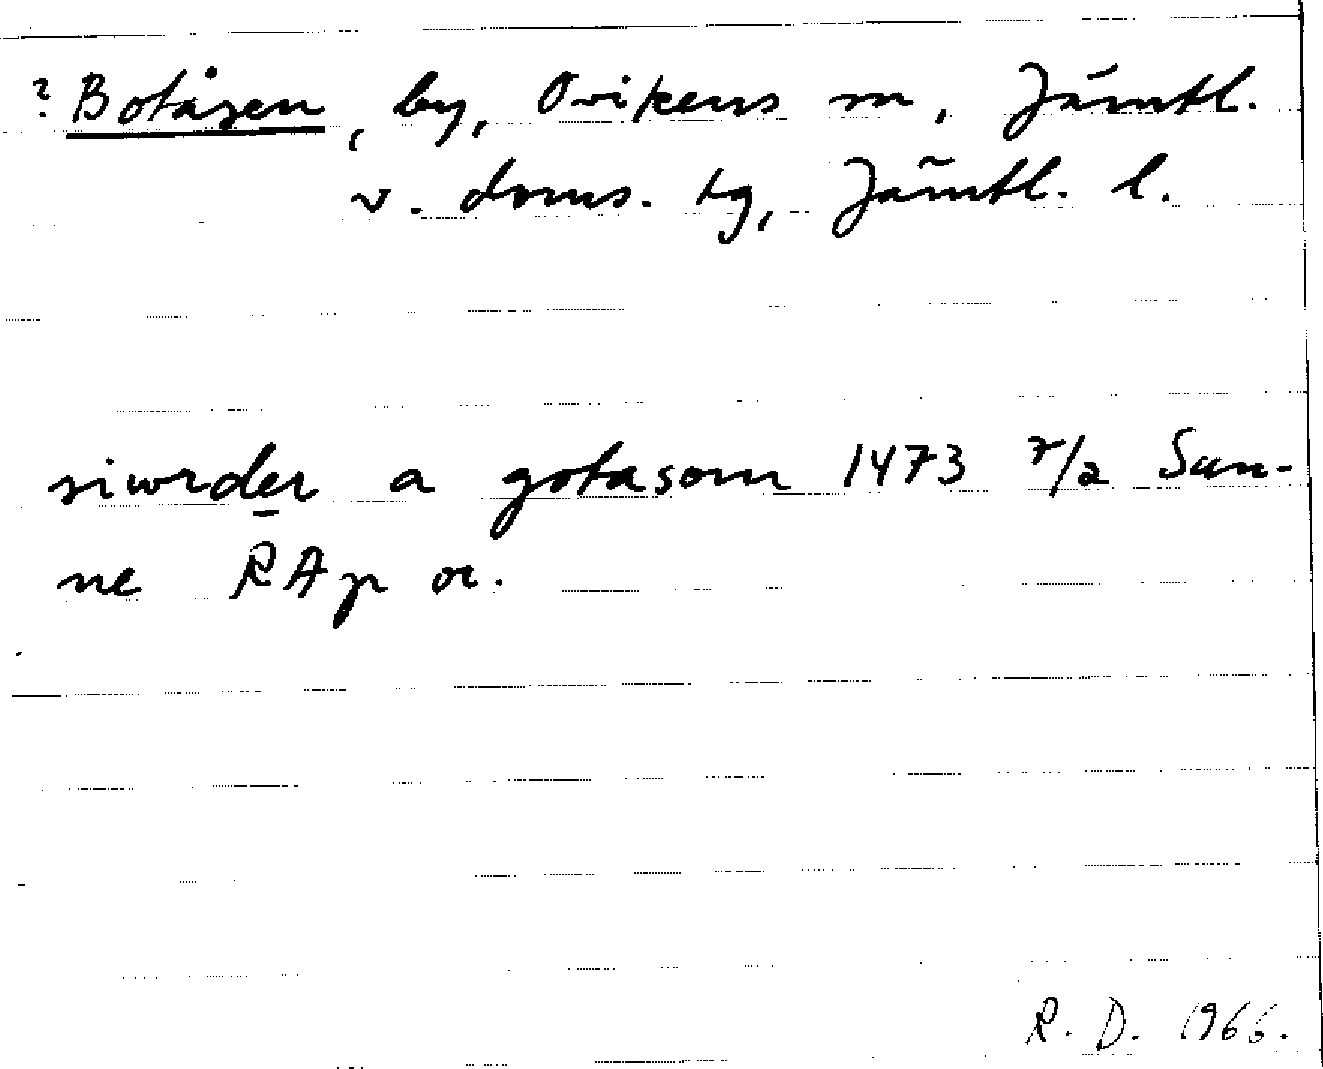 ? Botåsen, by, Ovikens sn, Jämtl.
v. doms. tg, Jämtl. l.
siwrder a gotasom 1473 7/2 Sun-
ne RAp or.
R. D. 1966.